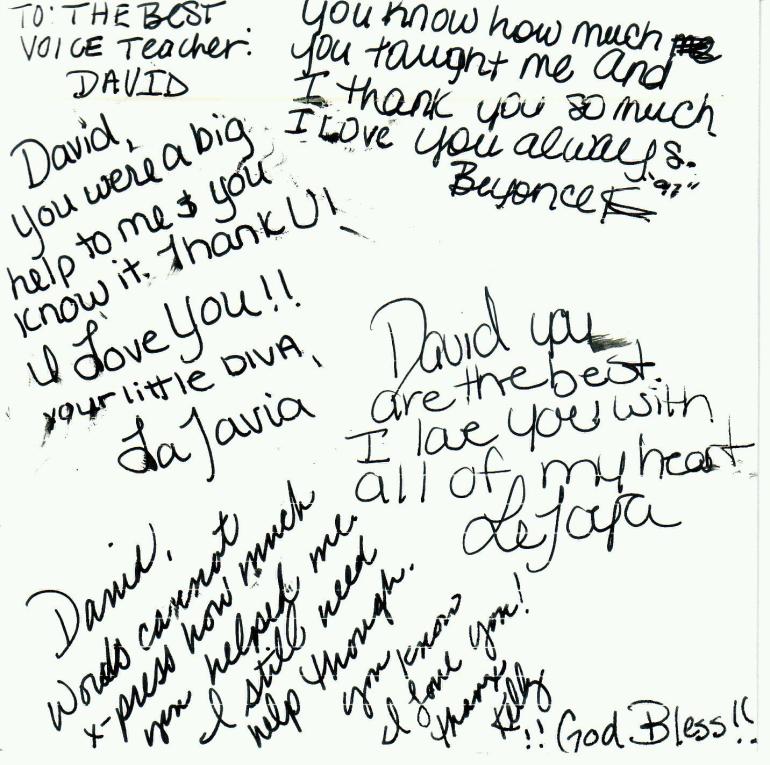 TO: THE BEST
VOICE Teacher:
DAVID
You know how much
you taught me and
I thank you so much
I LOVE you always.
Beyonce "97"
David,
you were a big
help to me & you
know it. Thank U!
I Love You!!
your little DIVA,
LaTavia
David you
are the best.
I love you with
all of my heart
LeToya
David,
Words cannot
x-press how much
you helped me.
I still need
help though.
you know
I love you!
thanx
Kelly
!! God Bless!!